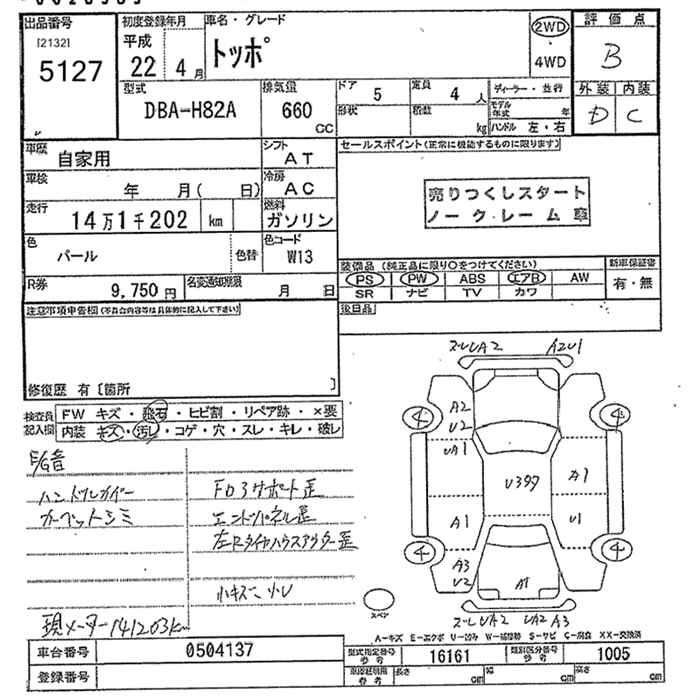 出品番号 初度登録年月 車名・グレード 評価点
[2132]
5127
平成 22年 4月
トッポ
2WD・4WD
B
型式 排気量 ドア 定員 ディーラー・並行 外装 内装
DBA-H82A 660 CC 5 4人 D C
形状 積数 kg モデル年式 年
ハンドル 左・右
車歴 自家用 シフト AT セールスポイント(正常に機能するものに限ります)
車検 年 月( 日) 冷房 AC
売りつくしスタート
ノークレーム車
走行 14万1千202 km 燃料 ガソリン
色 パール 色替 色コード W13
装備品(純正品に限り○をつけてください) 新車保証書
PS PW ABS エアB AW 有・無
SR ナビ TV カワ
R券 9,750円 名変通知期限 月 日
注意事項申告欄(不具合内容等は具体的に記入して下さい) 後日品
修復歴 有〔箇所 〕
検査員記入欄 FW キズ・飛石・ヒビ割・リペア跡・×要
内装 キズ・汚レ・コゲ・穴・スレ・キレ・破レ
ハンドルカバー FD3サポート歪
カーペットシミ エンドパネル歪
左Rタイヤハウスアウター歪
小キズ 小U
現メーター141203km
ズレUA2 A2U1
A2
U2
4 4
UA1
U397 A1
A1 U1
4 4
A3
U2
A1
スペア
ズレUA2 UA2 A3
A-キズ E-エクボ U-凹み W-補修跡 S-サビ C-腐食 XX-交換済
車台番号 0504137 型式指定番号参考 16161 類別区分番号参考 1005
登録番号 長さ cm 幅 cm 高さ cm